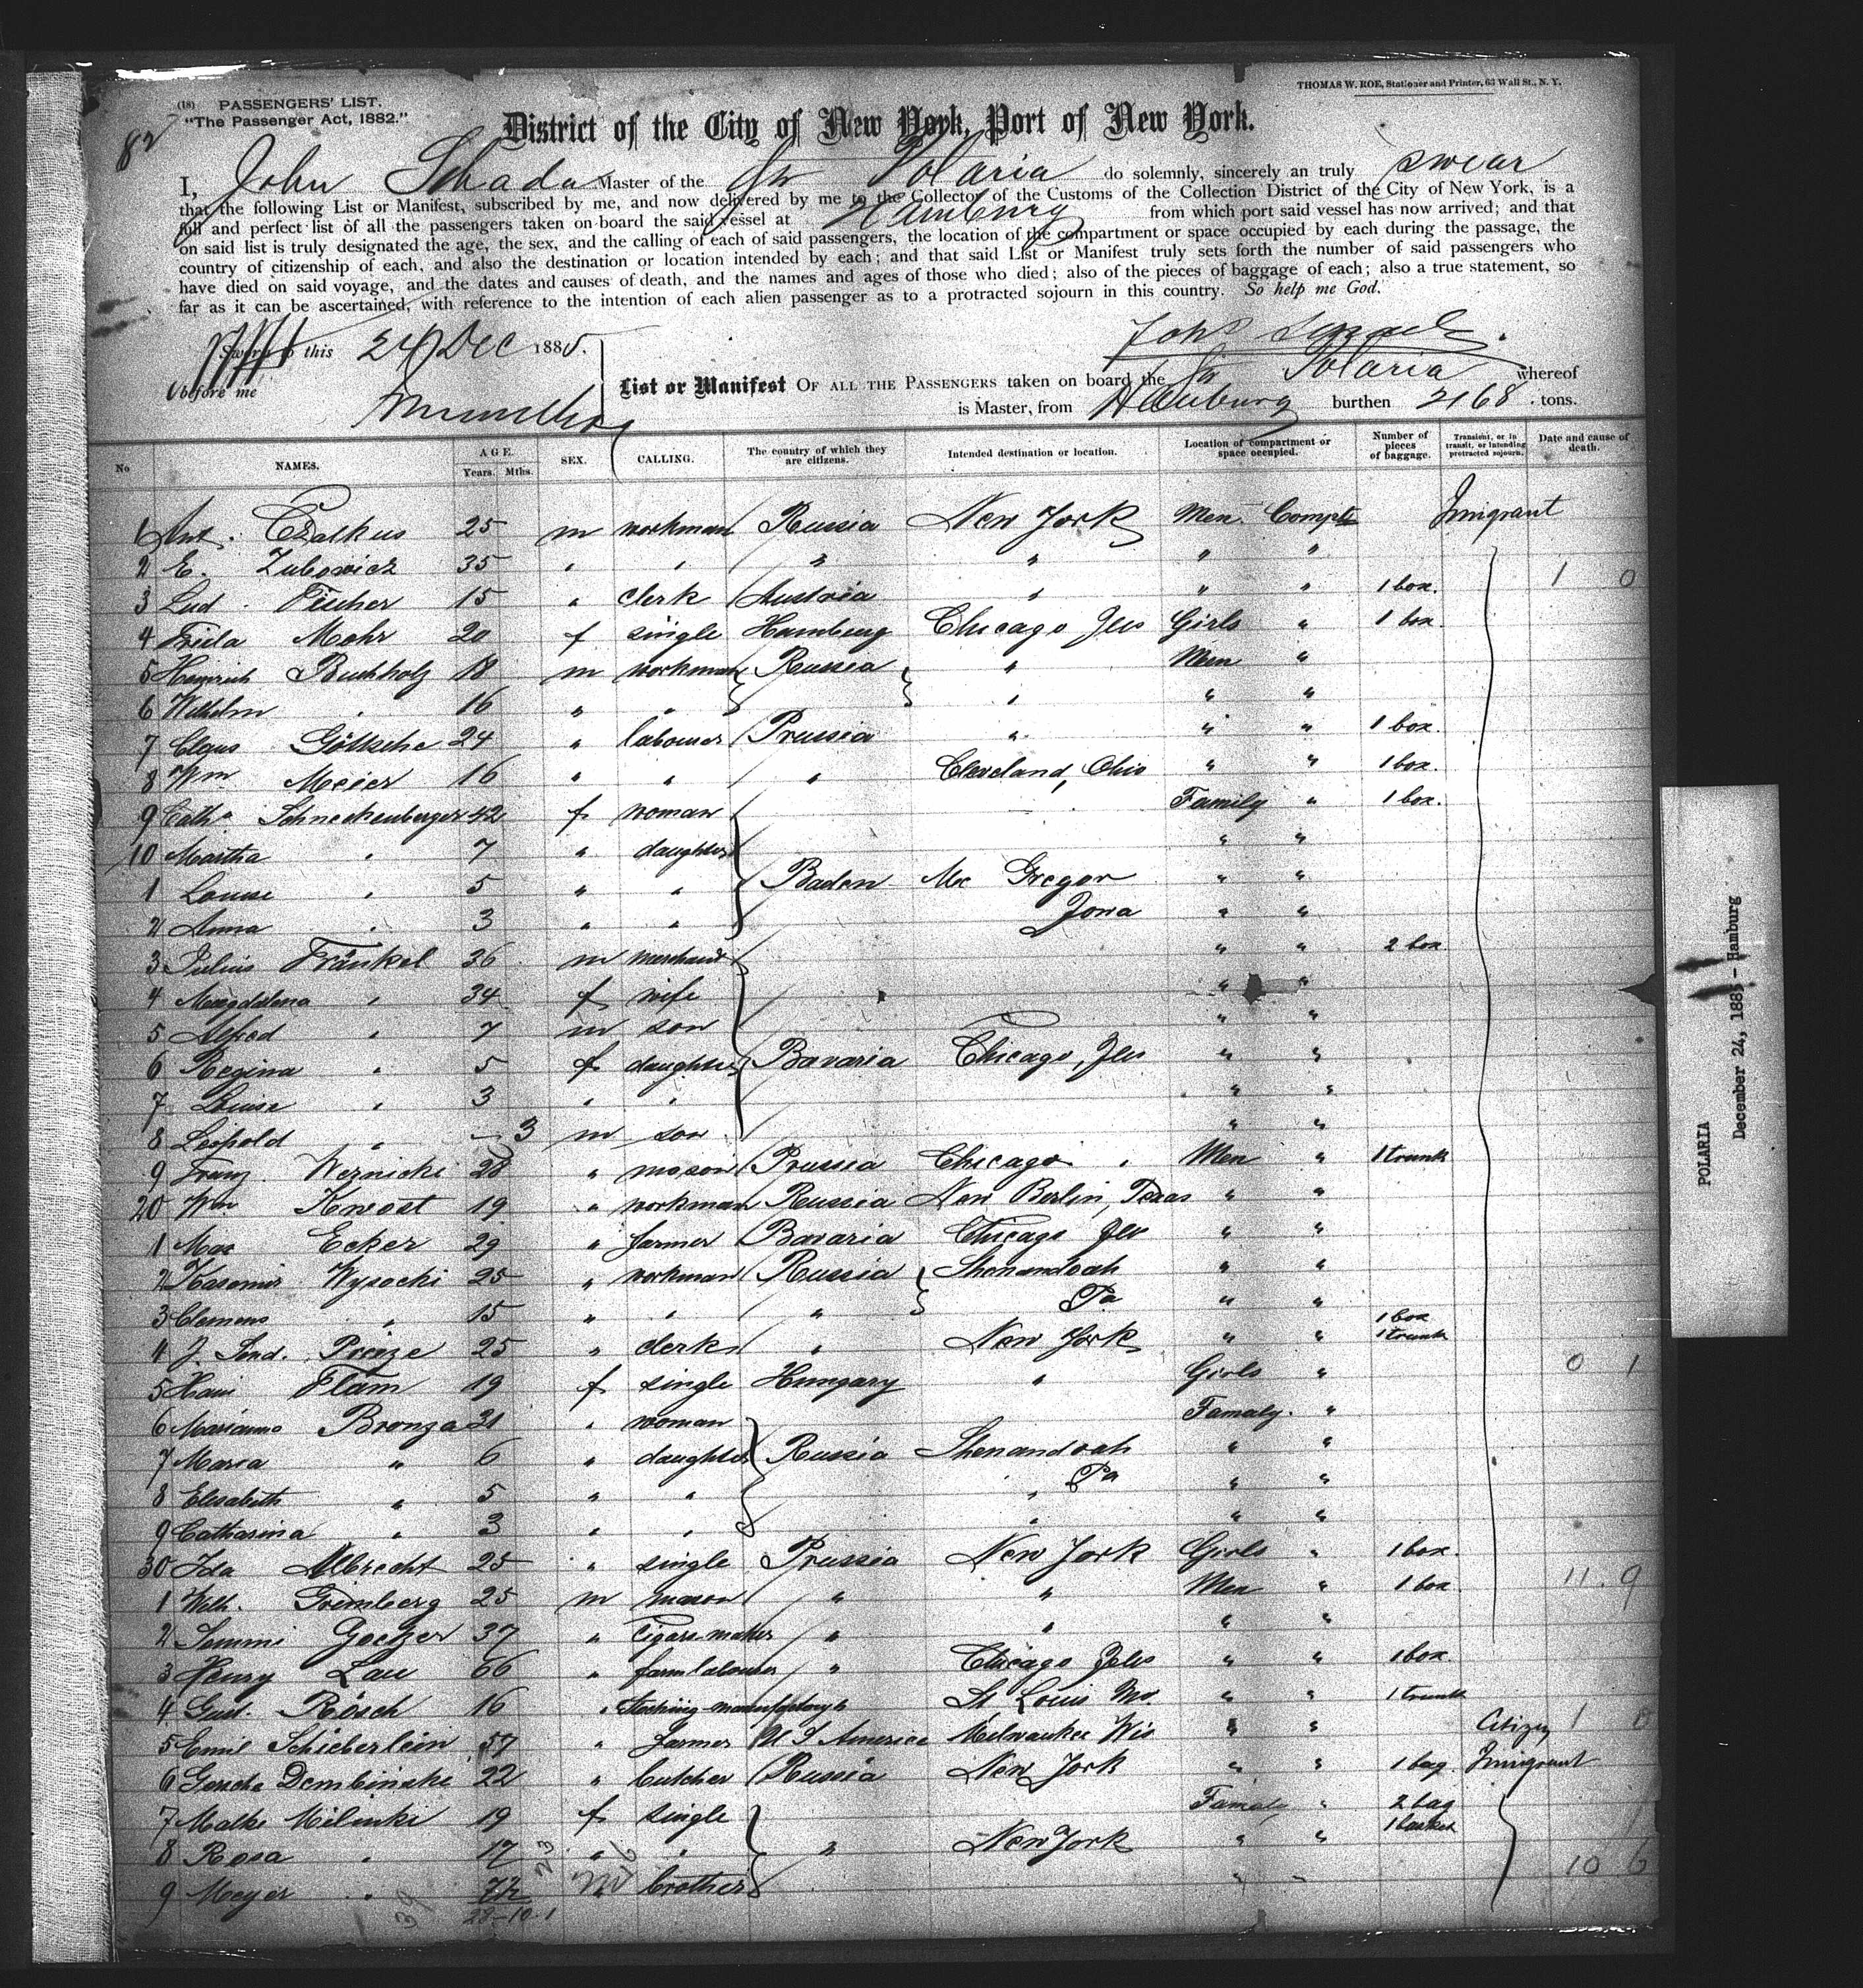 THOMAS W. ROE, Stationer and Printer, 63 Wall St., N. Y.
(18) PASSENGERS' LIST.
"The Passenger Act, 1882."
82
District of the City of New York, Port of New York.
I, John Schade Master of the Str Polaria do solemnly, sincerely an truly swear
that the following List or Manifest, subscribed by me, and now delivered by me to the Collector of the Customs of the Collection District of the City of New York, is a
full and perfect list of all the passengers taken on board the said vessel at Hamburg from which port said vessel has now arrived; and that
on said list is truly designated the age, the sex, and the calling of each of said passengers, the location of the compartment or space occupied by each during the passage, the
country of citizenship of each, and also the destination or location intended by each; and that said List or Manifest truly sets forth the number of said passengers who
have died on said voyage, and the dates and causes of death, and the names and ages of those who died; also of the pieces of baggage of each; also a true statement, so
far as it can be ascertained, with reference to the intention of each alien passenger as to a protracted sojourn in this country. So help me God.
Sworn to this 24 Dec 1885.
before me
List or Manifest OF ALL THE PASSENGERS taken on board the Str Polaria whereof
is Master, from Hamburg burthen 2168 tons.
No NAMES. AGE. Years. Mths. SEX. CALLING. The country of which they are citizens. Intended destination or location. Location of compartment or space occupied. Number of pieces of baggage. Transient, or in transit, or intending protracted sojourn. Date and cause of death.
1 Ant. Czalkus 25 m workman Russia New York Men Compt Imigrant
2 E. Zubowicz 35 " " " " " "
3 Lud. Fischer 15 " clerk Austria " " " 1 box. 1 0
4 Frieda Mohr 20 f single Hamburg Chicago Ills Girls " 1 box
5 Heinrich Buchholz 18 m workman Russia " Men "
6 Wilhelm " 16 " " " " "
7 Claus Göttsche 24 " labourer Prussia " " " 1 box.
8 Wm Meier 16 " " " Cleveland, Ohio " " 1 box.
9 Cath. Schneckenberger 42 f woman Family " 1 box.
10 Martha " 7 " daughter " "
1 Louise " 5 " " Baden Mc Gregor " "
2 Anna " 3 " " Iowa " "
3 Julius Fränkel 36 m merchant " " 2 box
4 Magdalena " 34 f wife " "
5 Alfred " 7 m son " "
6 Regina " 5 f daughter Bavaria Chicago, Ills " "
7 Louise " 3 " " " "
8 Leopold " - 3 m son " "
9 Franz Weznicki 28 " mason Prussia Chicago " Men " 1 trunk
20 Wm Kwost 19 " workman Russia New Berlin, Texas " "
1 Max Ecker 29 " farmer Bavaria Chicago Ills " "
2 Kasomir Wysocki 25 " workman Russia Shenandoah " "
3 Clemens " 15 " " " Pa " "
4 J. Ferd. Prieze 25 " clerk " New York " " 1 box 1 trunk
5 Hani Flam 19 f single Hungary " Girls " 0 1
6 Marianna Bronza 31 " woman Famaly. "
7 Maria " 6 " daughter Russia Shenandoah " "
8 Elisabeth " 5 " " " Pa " "
9 Catharina " 3 " " " " "
30 Ida Albrecht 25 " single Prussia New York Girls " 1 box.
1 Wilh. Grimberg 25 m mason " " Men " 1 box 11. 9
2 Sammi Goetzer 37 " Cigars-maker " " " "
3 Henry Lau 66 " farmlabourer " Chicago Ills " " 1 box
4 Gust. Rösch 16 " Stocking-manufactory " St Louis Mo. " " 1 trunk
5 Emil Schieberlein 57 " farmer U S America Milwaukee Wis " " Citizen 1 0
6 Gersche Dembinski 22 " butcher Russia New York " " 1 bag Imigrant
7 Malke Milinki 19 f single Famaly " 2 bag
8 Rosa " 17 " " " New York " " 1 basket
9 Meyer " 7½ m brother " " 10 6
28-10-1
39
23
POLARIA
December 24, 1885 - Hamburg